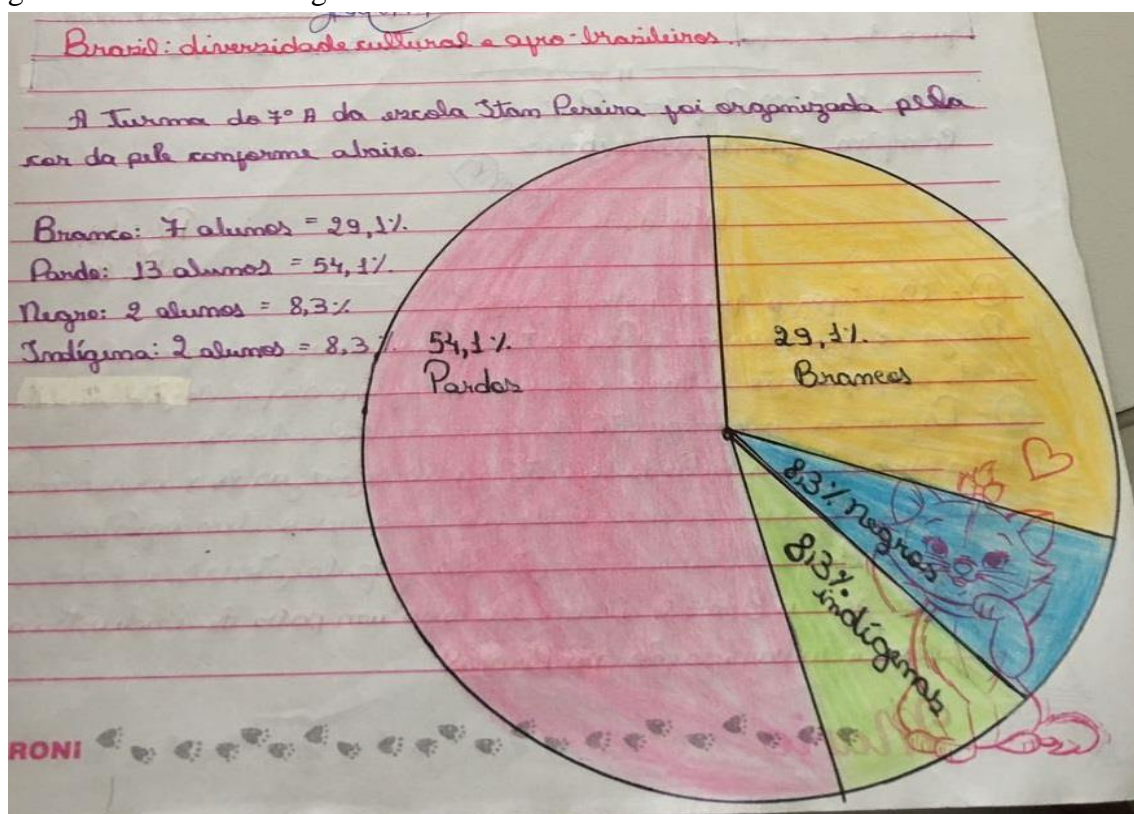 Brasil: diversidade cultural e afro-brasileiros.
A Turma do 7º A da escola Stan Pereira foi organizada pela
cor da pele conforme abaixo.
Branco: 7 alunos = 29,1%.
Pardo: 13 alunos = 54,1%.
Negro: 2 alunos = 8,3%.
Indígena: 2 alunos = 8,3%.
54,1%.
Pardos
29,1%.
Brancos
8,3% negros
8,3%
indígenas
RONI